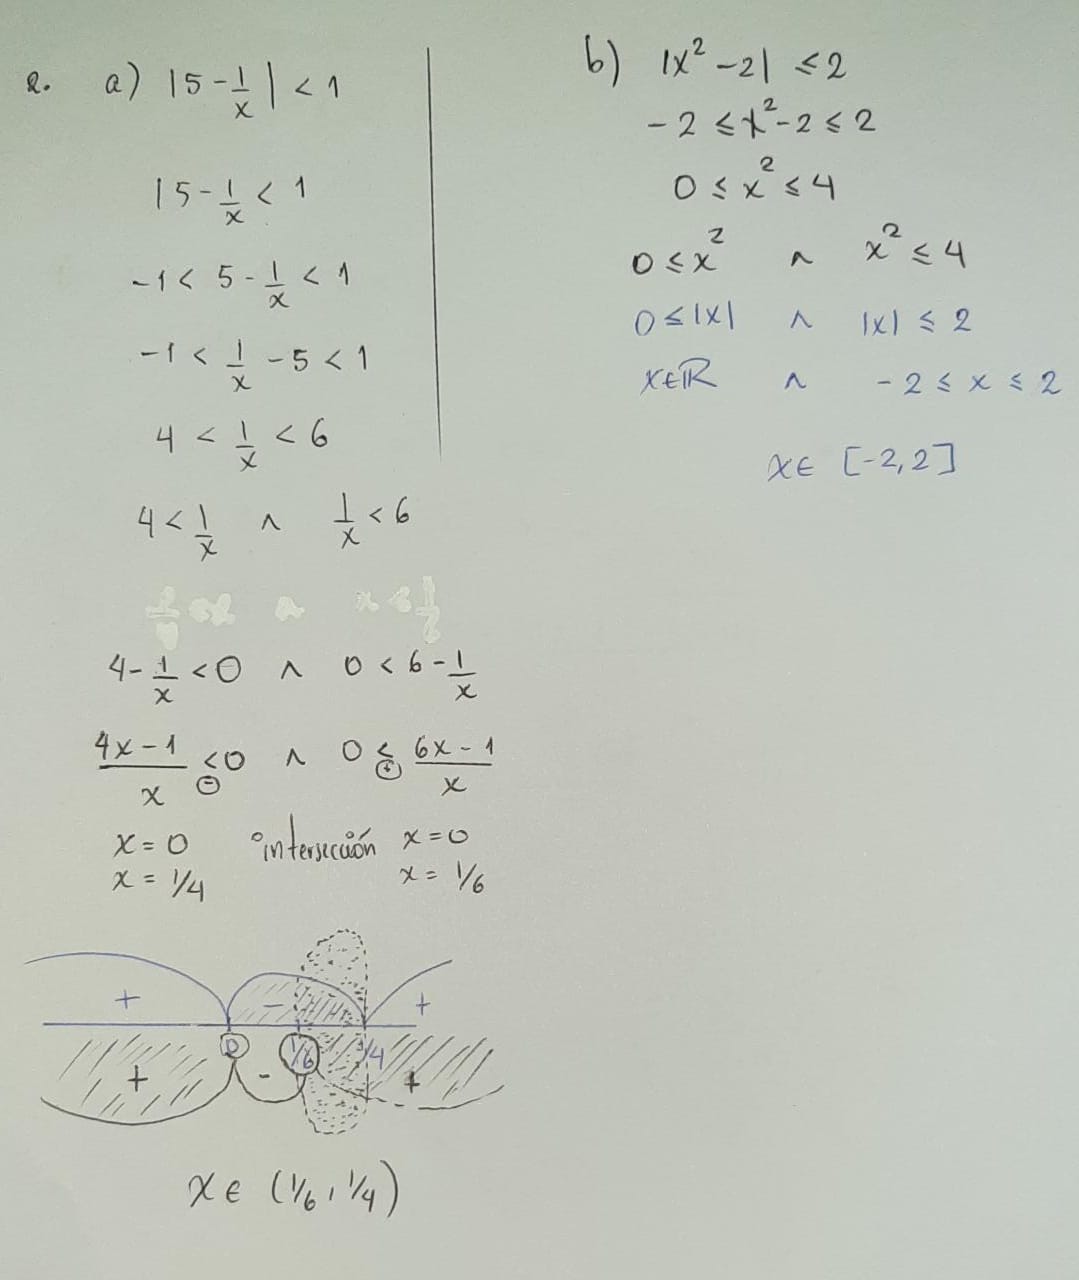 2. a) |5 - 1/x| < 1
|5 - 1/x < 1
-1 < 5 - 1/x < 1
-1 < 1/x - 5 < 1
4 < 1/x < 6
4 < 1/x ∧ 1/x < 6
4 - 1/x < 0 ∧ 0 < 6 - 1/x
(4x - 1)/x < 0 ∧ 0 < (6x - 1)/x
⊖ ⊕
x = 0 intersección x = 0
x = 1/4 x = 1/6
+ - +
0 1/6 1/4
+ - +
x ∈ (1/6, 1/4)
b) |x² - 2| ≤ 2
-2 ≤ x² - 2 ≤ 2
0 ≤ x² ≤ 4
0 ≤ x² ∧ x² ≤ 4
0 ≤ |x| ∧ |x| ≤ 2
x ∈ ℝ ∧ -2 ≤ x ≤ 2
x ∈ [-2, 2]